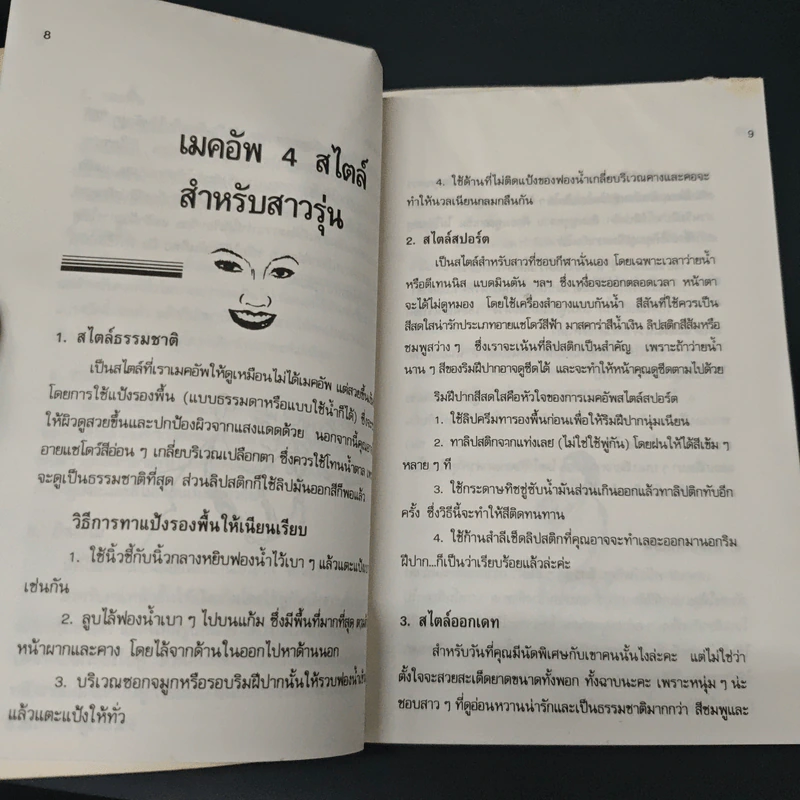 8
เมคอัพ 4 สไตล์
สำหรับสาวรุ่น
1. สไตล์ธรรมชาติ
เป็นสไตล์ที่เราเมคอัพให้ดูเหมือนไม่ได้เมคอัพ แต่สวยขึ้น
โดยการใช้แป้งรองพื้น (แบบธรรมดาหรือแบบใช้น้ำก็ได้)
ให้ผิวดูสวยขึ้นและปกป้องผิวจากแสงแดดด้วย นอกจากนี้คุณ
อายแชโดว์สีอ่อน ๆ เกลี่ยบริเวณเปลือกตา ซึ่งควรใช้โทนน้ำตาล
จะดูเป็นธรรมชาติที่สุด ส่วนลิปสติกก็ใช้ลิปมันออกสีก็พอแล้ว
วิธีการทาแป้งรองพื้นให้เนียนเรียบ
1. ใช้นิ้วชี้กับนิ้วกลางหยิบฟองน้ำไว้เบา ๆ แล้วแตะแป้ง
เช่นกัน
2. ลูบไล้ฟองน้ำเบา ๆ ไปบนแก้ม ซึ่งมีพื้นที่มากที่สุด
หน้าผากและคาง โดยไล้จากด้านในออกไปหาด้านนอก
3. บริเวณซอกจมูกหรือรอบริมฝีปากนั้นให้รวบฟองน้ำ
แล้วแตะแป้งให้ทั่ว
9
4. ใช้ด้านที่ไม่ติดแป้งของฟองน้ำเกลี่ยบริเวณคางและคอจะ
ทำให้นวลเนียนกลมกลืนกัน
2. สไตล์สปอร์ต
เป็นสไตล์สำหรับสาวที่ชอบกีฬานั่นเอง โดยเฉพาะเวลาว่ายน้ำ
หรือตีเทนนิส แบดมินตัน ฯลฯ ซึ่งเหงื่อจะออกตลอดเวลา หน้าตา
จะได้ไม่ดูหมอง โดยใช้เครื่องสำอางแบบกันน้ำ สีสันที่ใช้ควรเป็น
สีสดใสน่ารักประเภทอายแชโดว์สีฟ้า มาสคาร่าสีน้ำเงิน ลิปสติกสีส้มหรือ
ชมพูสว่าง ๆ ซึ่งเราจะเน้นที่ลิปสติกเป็นสำคัญ เพราะถ้าว่ายน้ำ
นาน ๆ สีของริมฝีปากอาจดูซีดได้ และจะทำให้หน้าคุณดูซีดตามไปด้วย
ริมฝีปากสีสดใสคือหัวใจของการเมคอัพสไตล์สปอร์ต
1. ใช้ลิปครีมทารองพื้นก่อนเพื่อให้ริมฝีปากนุ่มเนียน
2. ทาลิปสติกจากแท่งเลย (ไม่ใช่ใช้พู่กัน) โดยฝนให้ได้สีเข้ม ๆ
หลาย ๆ ที
3. ใช้กระดาษทิชชู่ซับน้ำมันส่วนเกินออกแล้วทาลิปติกทับอีก
ครั้ง ซึ่งวิธีนี้จะทำให้สีติดทนทาน
4. ใช้ก้านสำลีเช็ดลิปสติกที่คุณอาจจะทำเลอะออกมานอกริม
ฝีปาก...ก็เป็นว่าเรียบร้อยแล้วล่ะค่ะ
3. สไตล์ออกเดท
สำหรับวันที่คุณมีนัดพิเศษกับเขาคนนั้นไงล่ะคะ แต่ไม่ใช่ว่า
ตั้งใจจะสวยสะเด็ดยาดขนาดทั้งพอก ทั้งฉาบนะคะ เพราะหนุ่ม ๆ น่ะ
ชอบสาว ๆ ที่ดูอ่อนหวานน่ารักและเป็นธรรมชาติมากกว่า สีชมพูและ